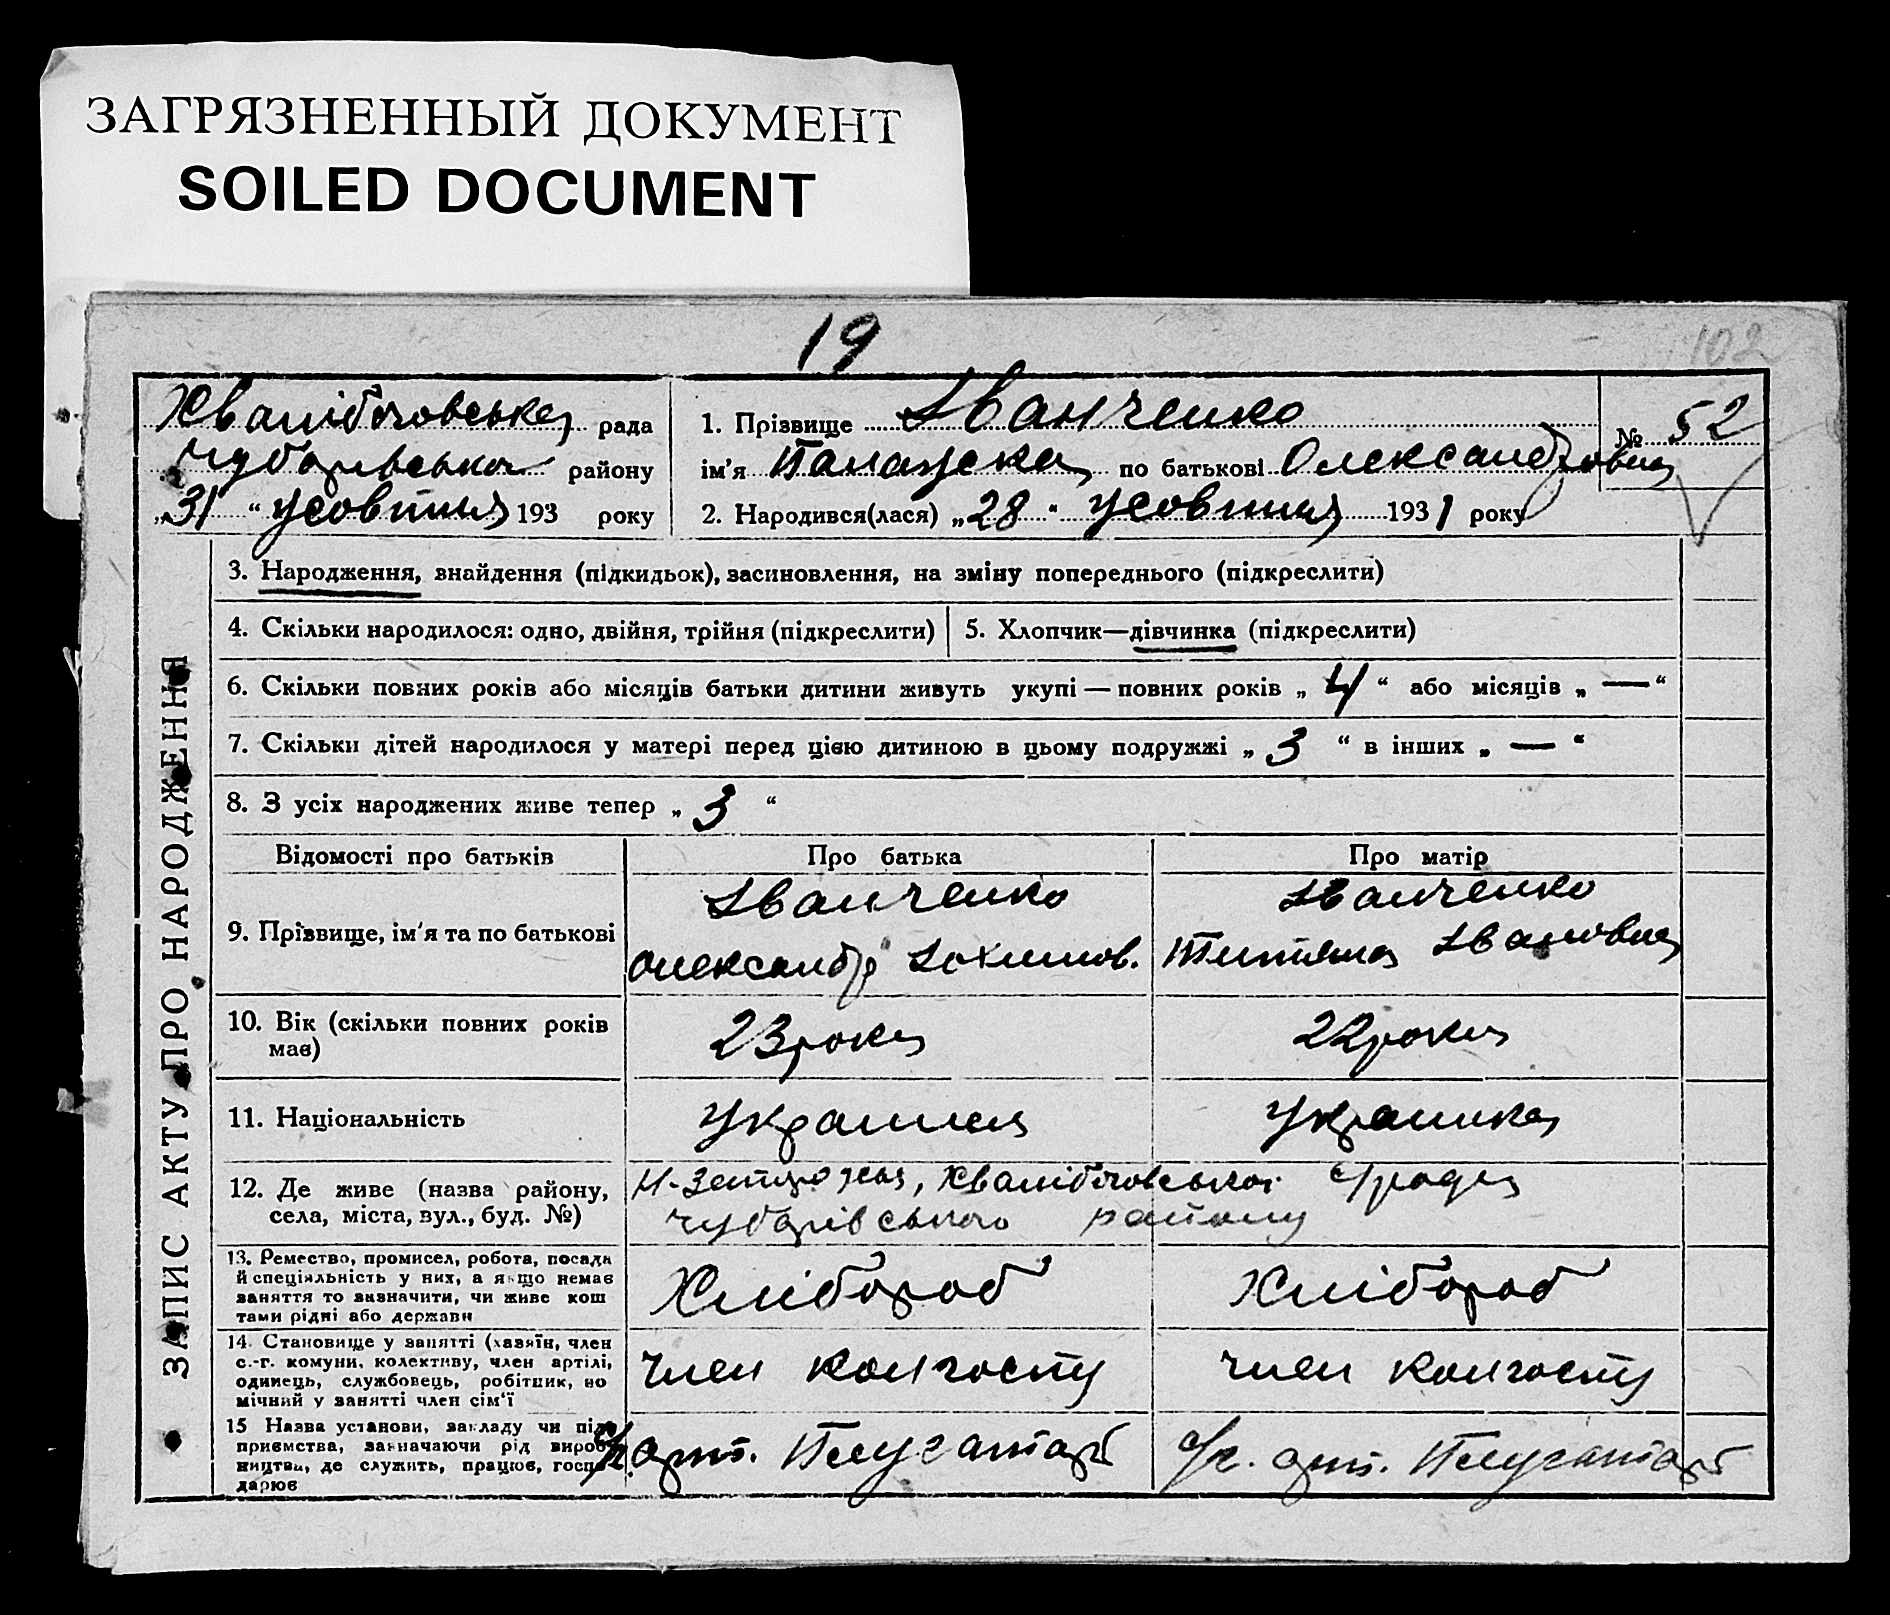 ЗАГРЯЗНЕННЫЙ ДОКУМЕНТ
SOILED DOCUMENT
19
102
Хвалібоговська рада
Чубарівська району
„31“ Жовтня 193 року
1. Прізвище Іванченко
ім'я по батькові Олександровна
2. Народився(лася) „28“ Жовтня 1931 року
№ 52
ЗАПИС АКТУ ПРО НАРОДЖЕННЯ
3. Народження, знайдення (підкидьок), засиновлення, на зміну попереднього (підкреслити)
4. Скільки народилося: одно, двійня, трійня (підкреслити)
5. Хлопчик—дівчинка (підкреслити)
6. Скільки повних років або місяців батьки дитини живуть укупі — повних років „4“ або місяців „—“
7. Скільки дітей народилося у матері перед цією дитиною в цьому подружжі „3“ в інших „—“
8. З усіх народжених живе тепер „3“
Відомості про батьків
Про батька
Про матір
9. Прізвище, ім'я та по батькові
Іванченко
Олександр Іохимов.
Іванченко
Титяна Івановна
10. Вік (скільки повних років
має)
23 роки
22 роки
11. Національність
Українец
Українка
12. Де живе (назва району,
села, міста, вул., буд. №)
Хвалібоговської с/ради
Чубарівського району
13. Ремество, промисел, робота, посада
й спеціяльність у них, а якщо немає
заняття то визначити, чи живе кош
тами рідні або держави
Хлібороб
Хлібороб
14. Становище у занятті (хазяїн, член
с.-г. комуни, колективу, член артілі,
одинець, службовець, робітник, по
мічний у занятті член сім'ї
член колгоспу
член колгоспу
15 Назва установи, закладу чи під
приємства, зазначаючи рід вироб
ництва, де служить, працює, госпо
дарює
с/г. арт. Плугатарь
с/г. арт. Плугатарь